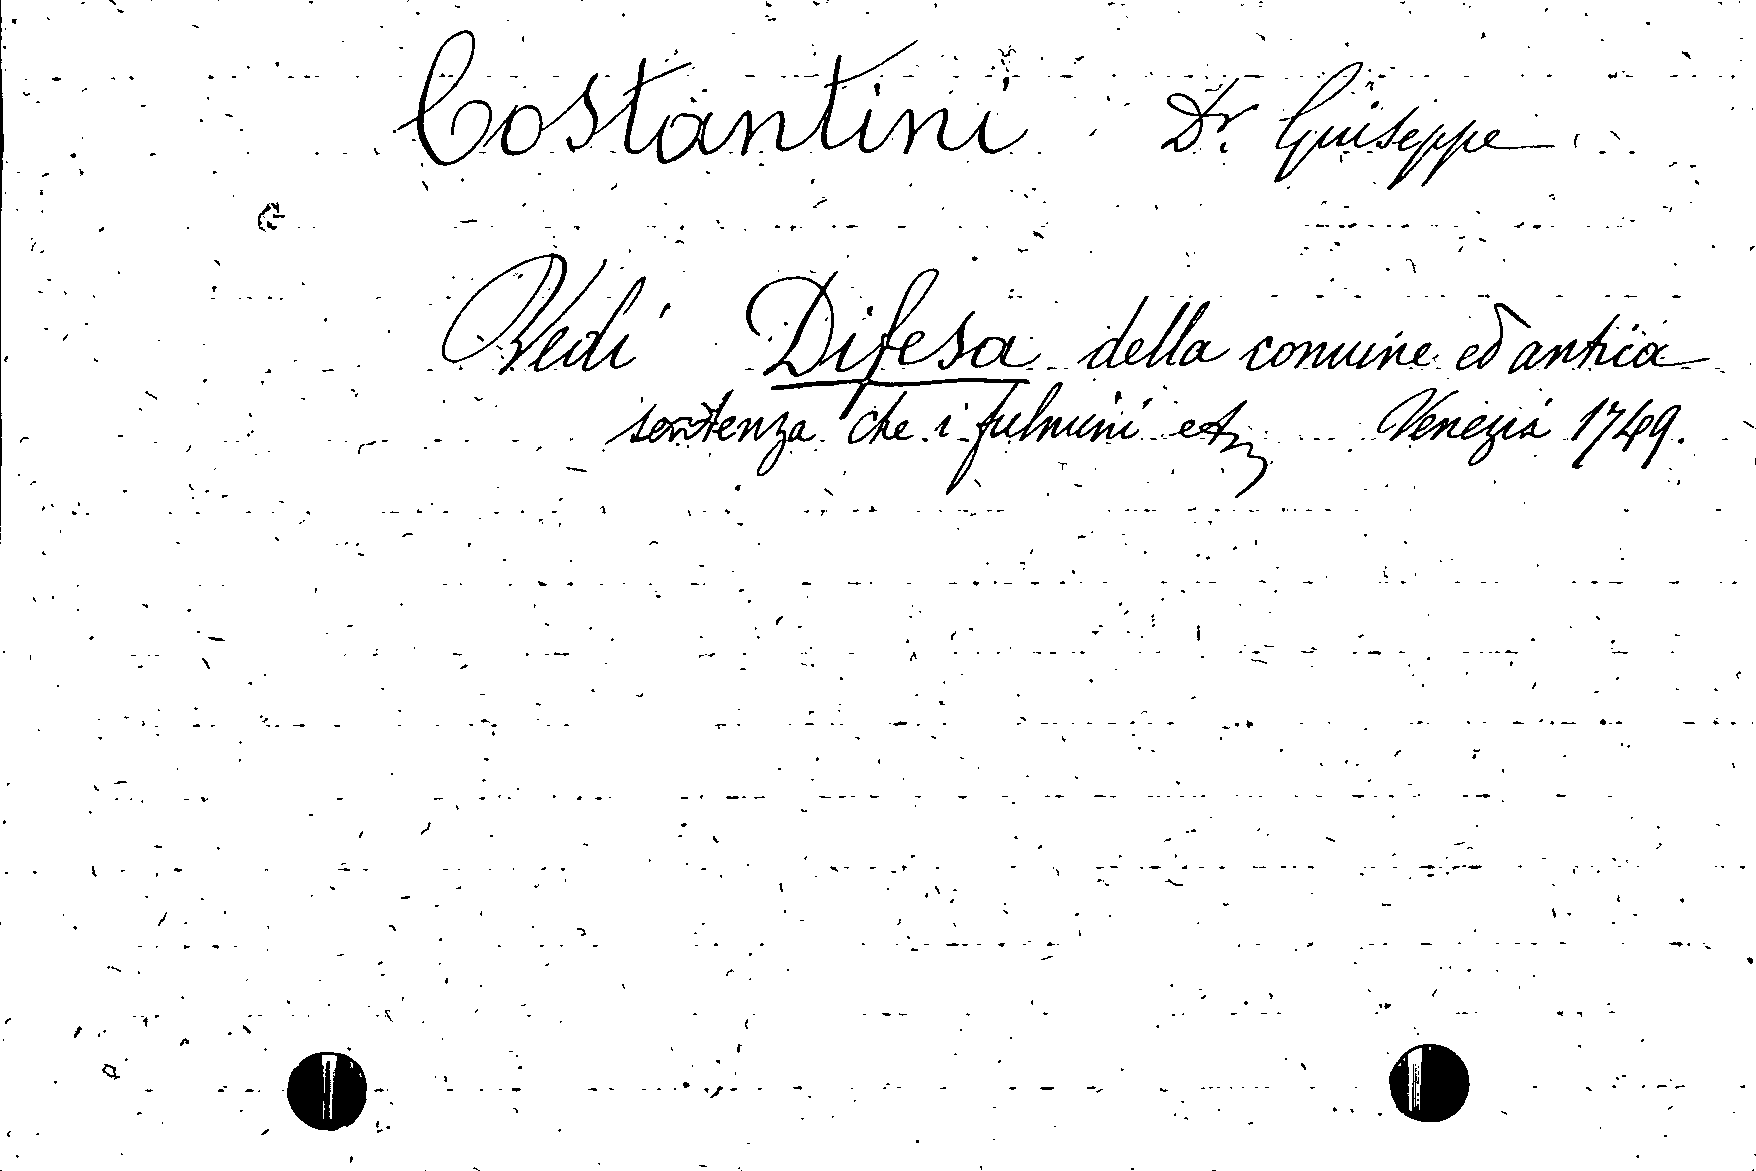 Costantini Dr. Giuseppe
Vedi Difesa della comune ed antica
sentenza che i fulmini etc Venezia 1749.